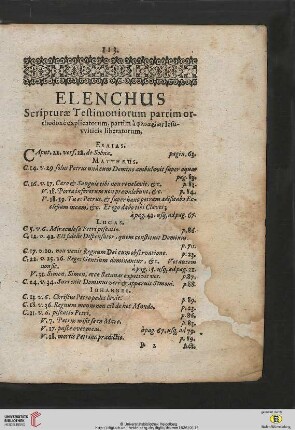 113.
ELENCHUS
Scripturæ Testimoniorum partim or-
thodoxè explicatorum, partim à
viticis liberatorum.
ESAIAS.
CAput. 22. vers. 18. de Sobna. pagin. 63.
MATTHÆUS.
C. 14. v. 29. solus Petrus unà cum Domino ambulavit super aquas
pag. 89.
C. 16. v. 17. Caro & Sanguis tibi non revelavit. &c. p. 83.
V. 18. Portæ inferorum non prævalebunt. &c. p. 84.
V. 18. 19. Tu es Petrus, & super hanc petram ædificabo Ec-
clesiam meam, &c. Et ego dabo tibi Claves;
à pag. 42. usq. ad pag. 67.
LUCAS.
C. 5. v. 6. Miraculosa Petri piscatio. p. 86.
C. 12. v. 42. Est fidelis Dispensator, quem constituit Dominus.
p. 70.
C. 17. v. 20. non venit Regnum Dei cum observatione. p. 23.
C. 22. v. 25. 26. Reges Gentium dominantur, &c. Vos autem
non sic. à pag. 15. usq. ad pag. 22.
V. 31. Simon. Simon, ecce Satanas expetivit vos. p. 89.
C. 24. v. 34. Surrexit Dominus verè & apparuit Simoni. p. 88.
IOHANNES.
C. 13. v. 6. Christus Petro pedes lavit. p. 89.
C. 18. v. 36. Regnum meum non est de hoc Mundo. p. 23.
C. 21. v. 6. piscatio Petri. p. 86.
V. 7. Petrus misit se in Mare. p. 85.
V. 17. pasce oves meas. à pag. 67. usq. ad 79.
V. 18. mortis Petrinæ prædictio. p. 89.
P 2
UNIVERSITÄTS-BIBLIOTHEK HEIDELBERG
© Universitätsbibliothek Heidelberg